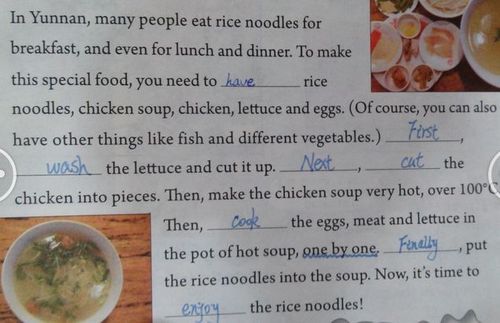 In Yunnan, many people eat rice noodles for
breakfast, and even for lunch and dinner. To make
this special food, you need to have rice
noodles, chicken soup, chicken, lettuce and eggs. (Of course, you can also
have other things like fish and different vegetables.) First,
wash the lettuce and cut it up. Next, cut the
chicken into pieces. Then, make the chicken soup very hot, over 100°C
Then, cook the eggs, meat and lettuce in
the pot of hot soup, one by one. Finally, put
the rice noodles into the soup. Now, it's time to
enjoy the rice noodles!